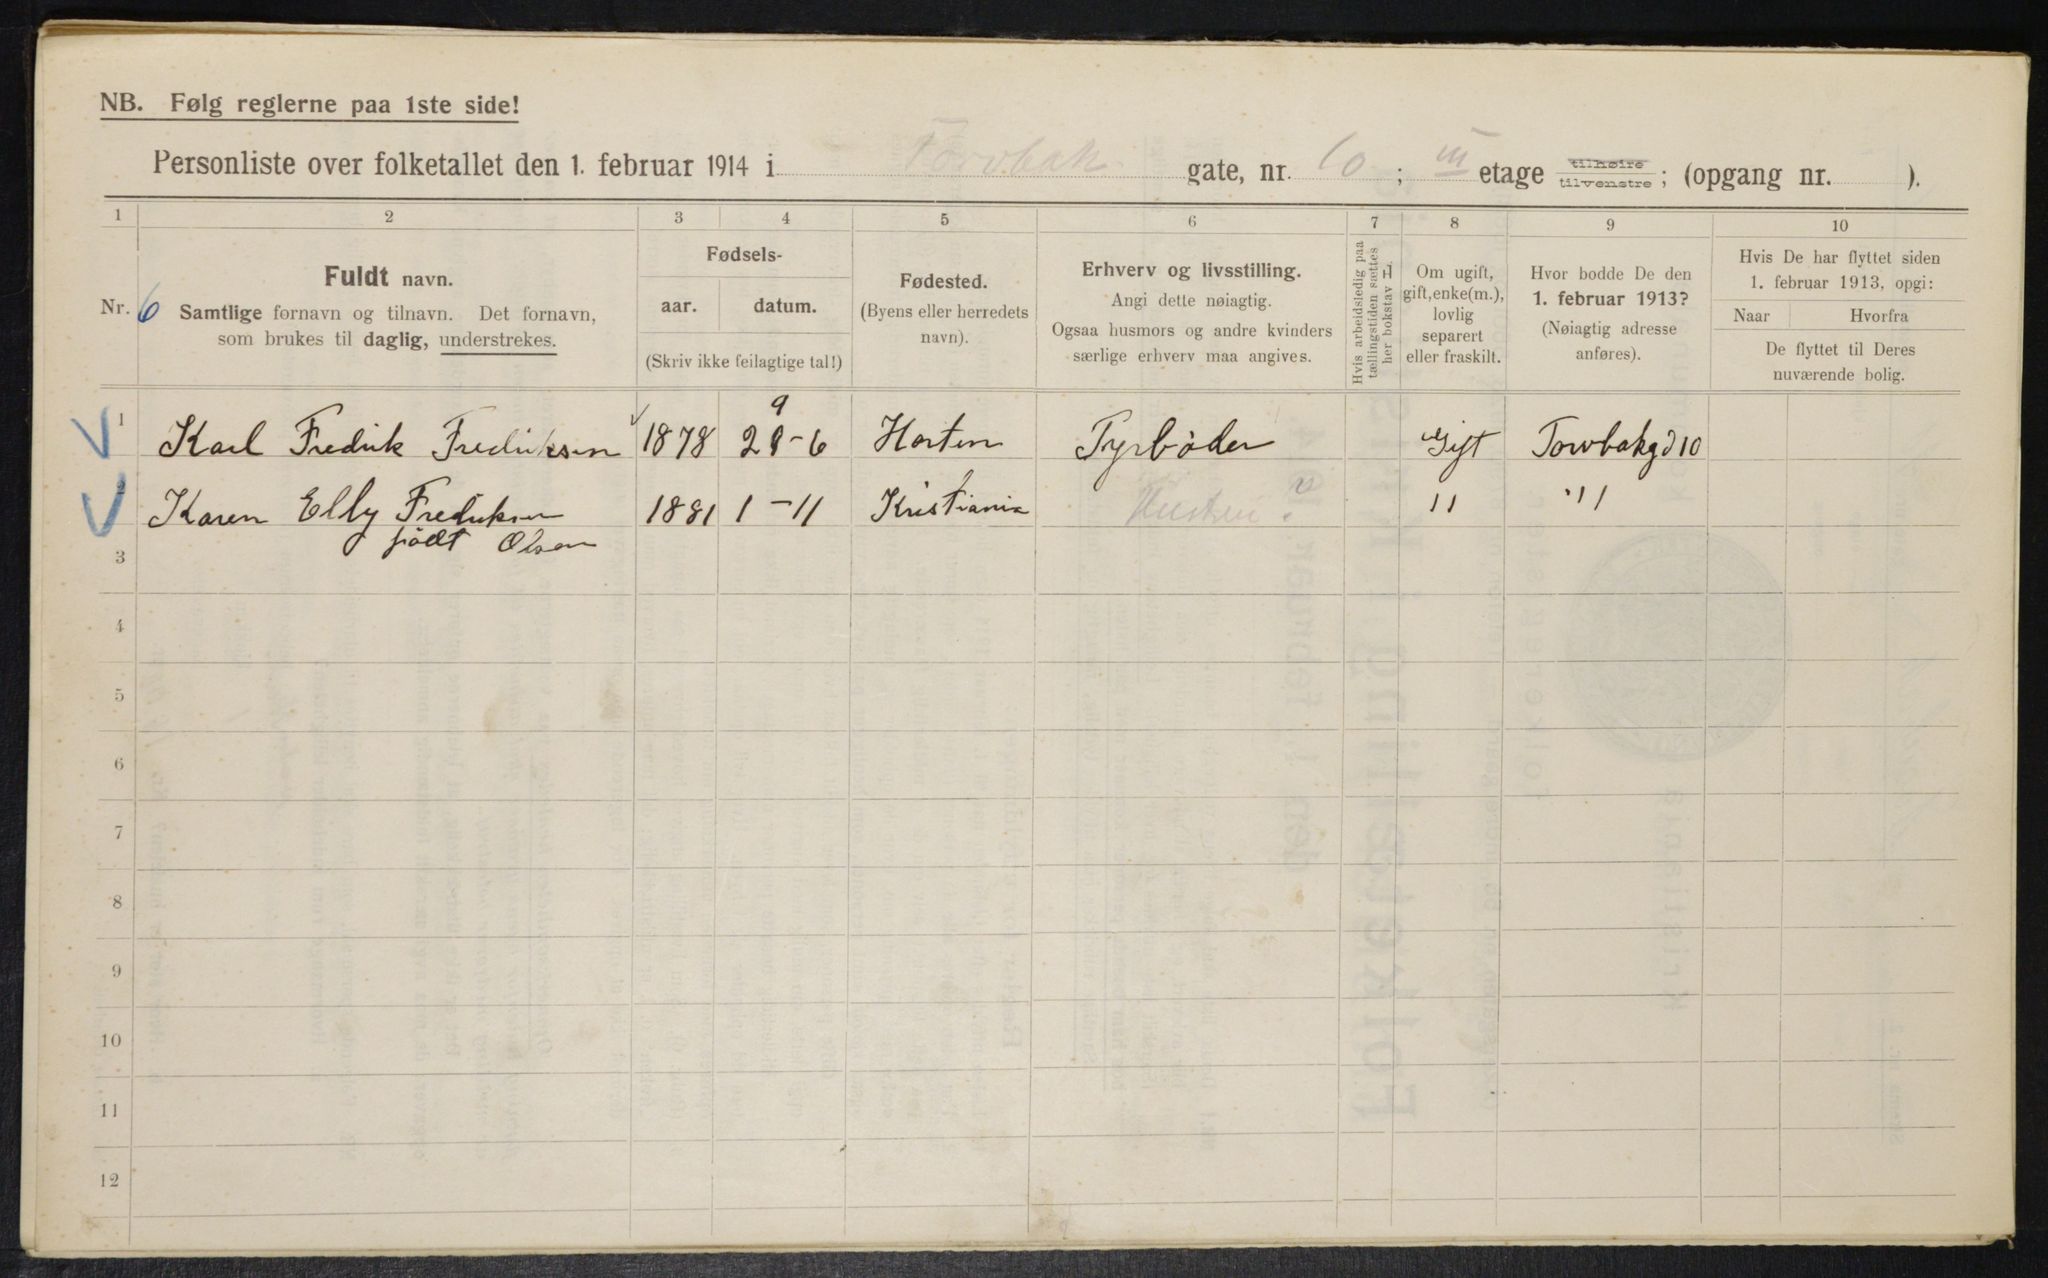 NB. Følg reglerne paa 1ste side!
Personliste over folketallet den 1. februar 1914 i Torvbak gate, nr. 10 ; III etage tilhøire tilvenstre ; (opgang nr. ).
1 2 3 4 5 6 7 8 9 10
Nr. 6
Fuldt navn.
Samtlige fornavn og tilnavn. Det fornavn,
som brukes til daglig, understrekes.
Fødsels-
aar. datum.
(Skriv ikke feilagtige tal!)
Fødested.
(Byens eller herredets
navn).
Erhverv og livsstilling.
Angi dette nøiagtig.
Ogsaa husmors og andre kvinders
særlige erhverv maa angives.
Hvis arbeidsledig paa
tællingstiden sættes
her bokstav L.
Om ugift,
gift, enke(m.),
lovlig
separert
eller fraskilt.
Hvor bodde De den
1. februar 1913?
(Nøiagtig adresse
anføres).
Hvis De har flyttet siden
1. februar 1913, opgi:
Naar Hvorfra
De flyttet til Deres
nuværende bolig.
9
1 Karl Fredrik Fredriksen 1878 28-6 Horten Fyrbøder Gift Torvbakgd 10
2 Karen Elly Fredriksen 1881 1-11 Kristiania Hustru " "
født Olsen
3
4
5
6
7
8
9
10
11
12